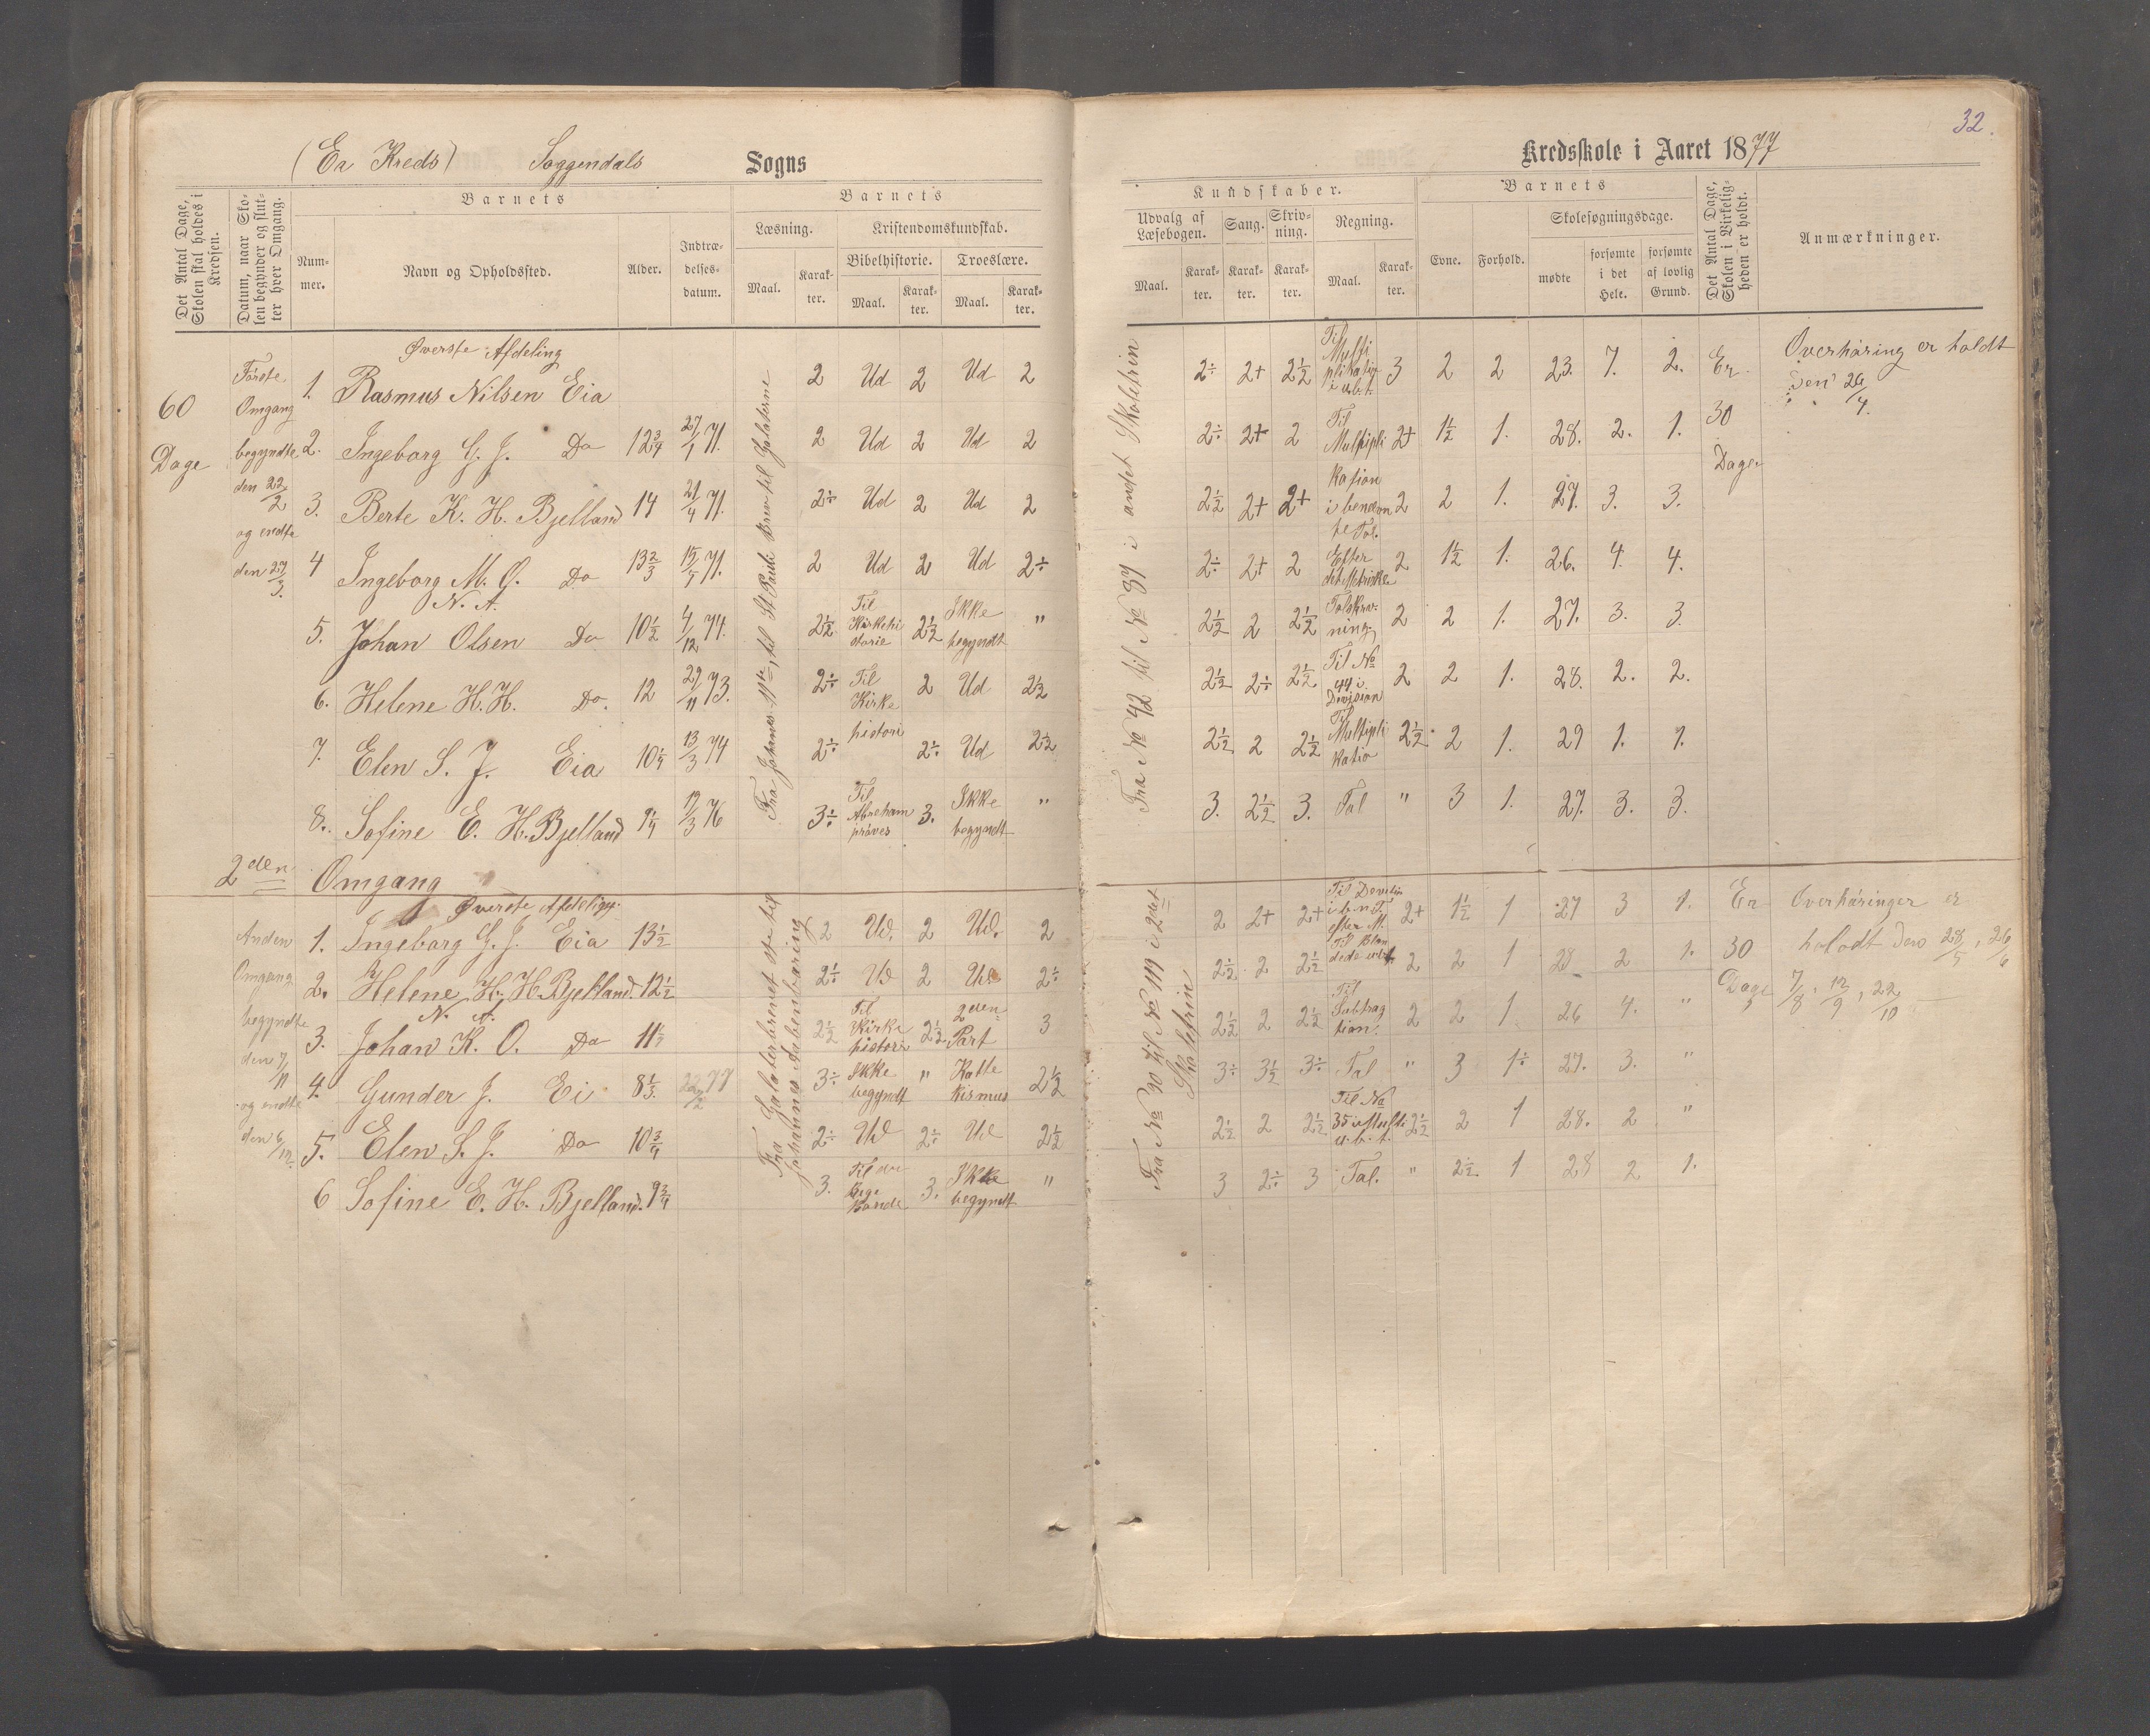 32.
(Ea Kreds) Soggendals Sogns Kredsskole i Aaret 1877
Det Antal Dage, Skolen skal holdes i Kredsen.
Datum, naar Skolen begynder og slutter hver Omgang.
Barnets
Nummer. Navn og Opholdssted. Alder. Indtrædelsesdatum.
Barnets
Læsning. Kristendomskundskab.
Bibelhistorie. Troeslære.
Maal. Karakter. Maal. Karakter. Maal. Karakter.
Kundskaber.
Udvalg af Læsebogen. Sang. Skrivning. Regning.
Maal. Karakter. Karakter. Karakter. Maal. Karakter.
Barnets
Evne. Forhold. Skolesøgningsdage.
mødte forsømte i det Hele. forsømte af lovlig Grund.
Det Antal Dage, Skolen i Virkeligheden er holdt.
Anmærkninger.
60 Dage
Første Omgang begyndte den 22/2 og endte den 27/3.
Øverste Afdeling
Fra Johannes 11te, til St. Pauli Brev til Galaterne
Fra No 42 til No 87 i andet Skoletrin
1. Rasmus Nilsen Eia 2 Ud 2 Ud 2 2÷ 2+ 2½ Til Multiplikation i ub. t. 3 2 2 23. 7. 2.
2. Ingeborg G. J. Do 12¾ 27/1 71. 2 Ud 2 Ud 2 2÷ 2+ 2 Til Multipli 2+ 1½ 1. 28. 2. 1.
3. Berte K. H. Bjelland 14 21/4 71. 2÷ Ud 2 Ud 2 2½ 2+ 2+ kation i benævnte Tal. 2 2 1. 27. 3. 3.
4 Ingeborg M. O. Do 13⅔ 15/5 71. 2 Ud 2 Ud 2÷ 2÷ 2+ 2 Efter det Metriske 2 1½ 1. 26. 4. 4.
N. A.
5. Johan Olsen Do 10½ 4/12 74. 2½ Til Kirkehistorie 2½ Ikke begyndt " 2½ 2 2½ Talskrivning 2 2 1. 27. 3. 3.
6. Helene H. H. Do. 12 29/11 73. 2÷ Til Kirke histori 2 Ud 2½ 2½ 2÷ 2½ Til No 44 i Division 2 2 1. 28. 2. 2.
7. Elen S. J. Eia 10¼ 13/3 74 2÷ 2÷ Ud 2½ 2½ 2 2½ Til Multiplikatio 2½ 2 1. 29 1. 1.
8. Sofine E. H. Bjelland 9¼ 17/3 76 3÷ Til Abraham prøves 3. Ikke begyndt " 3. 2½ 3. Tal " 3 1. 27. 3. 3.
Er 30 Dage
Overhøring er holdt den 26/4.
2den Omgang
Anden Omgang begyndte den 7/11 og endte den 6/12.
Øverste Afdeling.
Fra Galaterbrevet 5te til Johannes Aabenbaring
Fra No 90 til No 119 i 2det Skoletrin
1. Ingeborg G. J. Eia 13½ 2 Ud. 2 Ud. 2 2 2+ 2+ Til Devision i b. n. T. efter M. 2+ 1½ 1 27 3 1.
2. Helene H. H. Bjelland. 12½ 2÷ Ud 2 Ud 2÷ 2½ 2 2½ Til Blandede 2 2 1 28 2 1.
N. A.
3. Johan K. O. Do 11½ 2½ Til Kirke histori 2½ 2den Part 3 2½ 2 2½ Til Subtraction. 2 2 1 26 4. "
4. Gunder J. Ei 8⅓ 22/2 77 3÷ Ikke begyndt " Katte kismus 2½ 3÷ 3½ 3÷ Tal " 3 1÷ 27. 3. "
5. Elen S. J. Do 10¾ 2÷ Ud 2÷ Ud 2½ 2½ 2 2½ Til No 35 i Multi u. b. t. 2½ 2 1 28. 2 "
6 Sofine E. H. Bjelland. 9¾ 3. Til 3. Ikke begyndt " 3 2÷ 3 Tal. " 2½ 1 28 2 1.
Er 30 Dage
Overhøringer er holdt den 28/5, 26/6
7/8, 12/9, 22/10